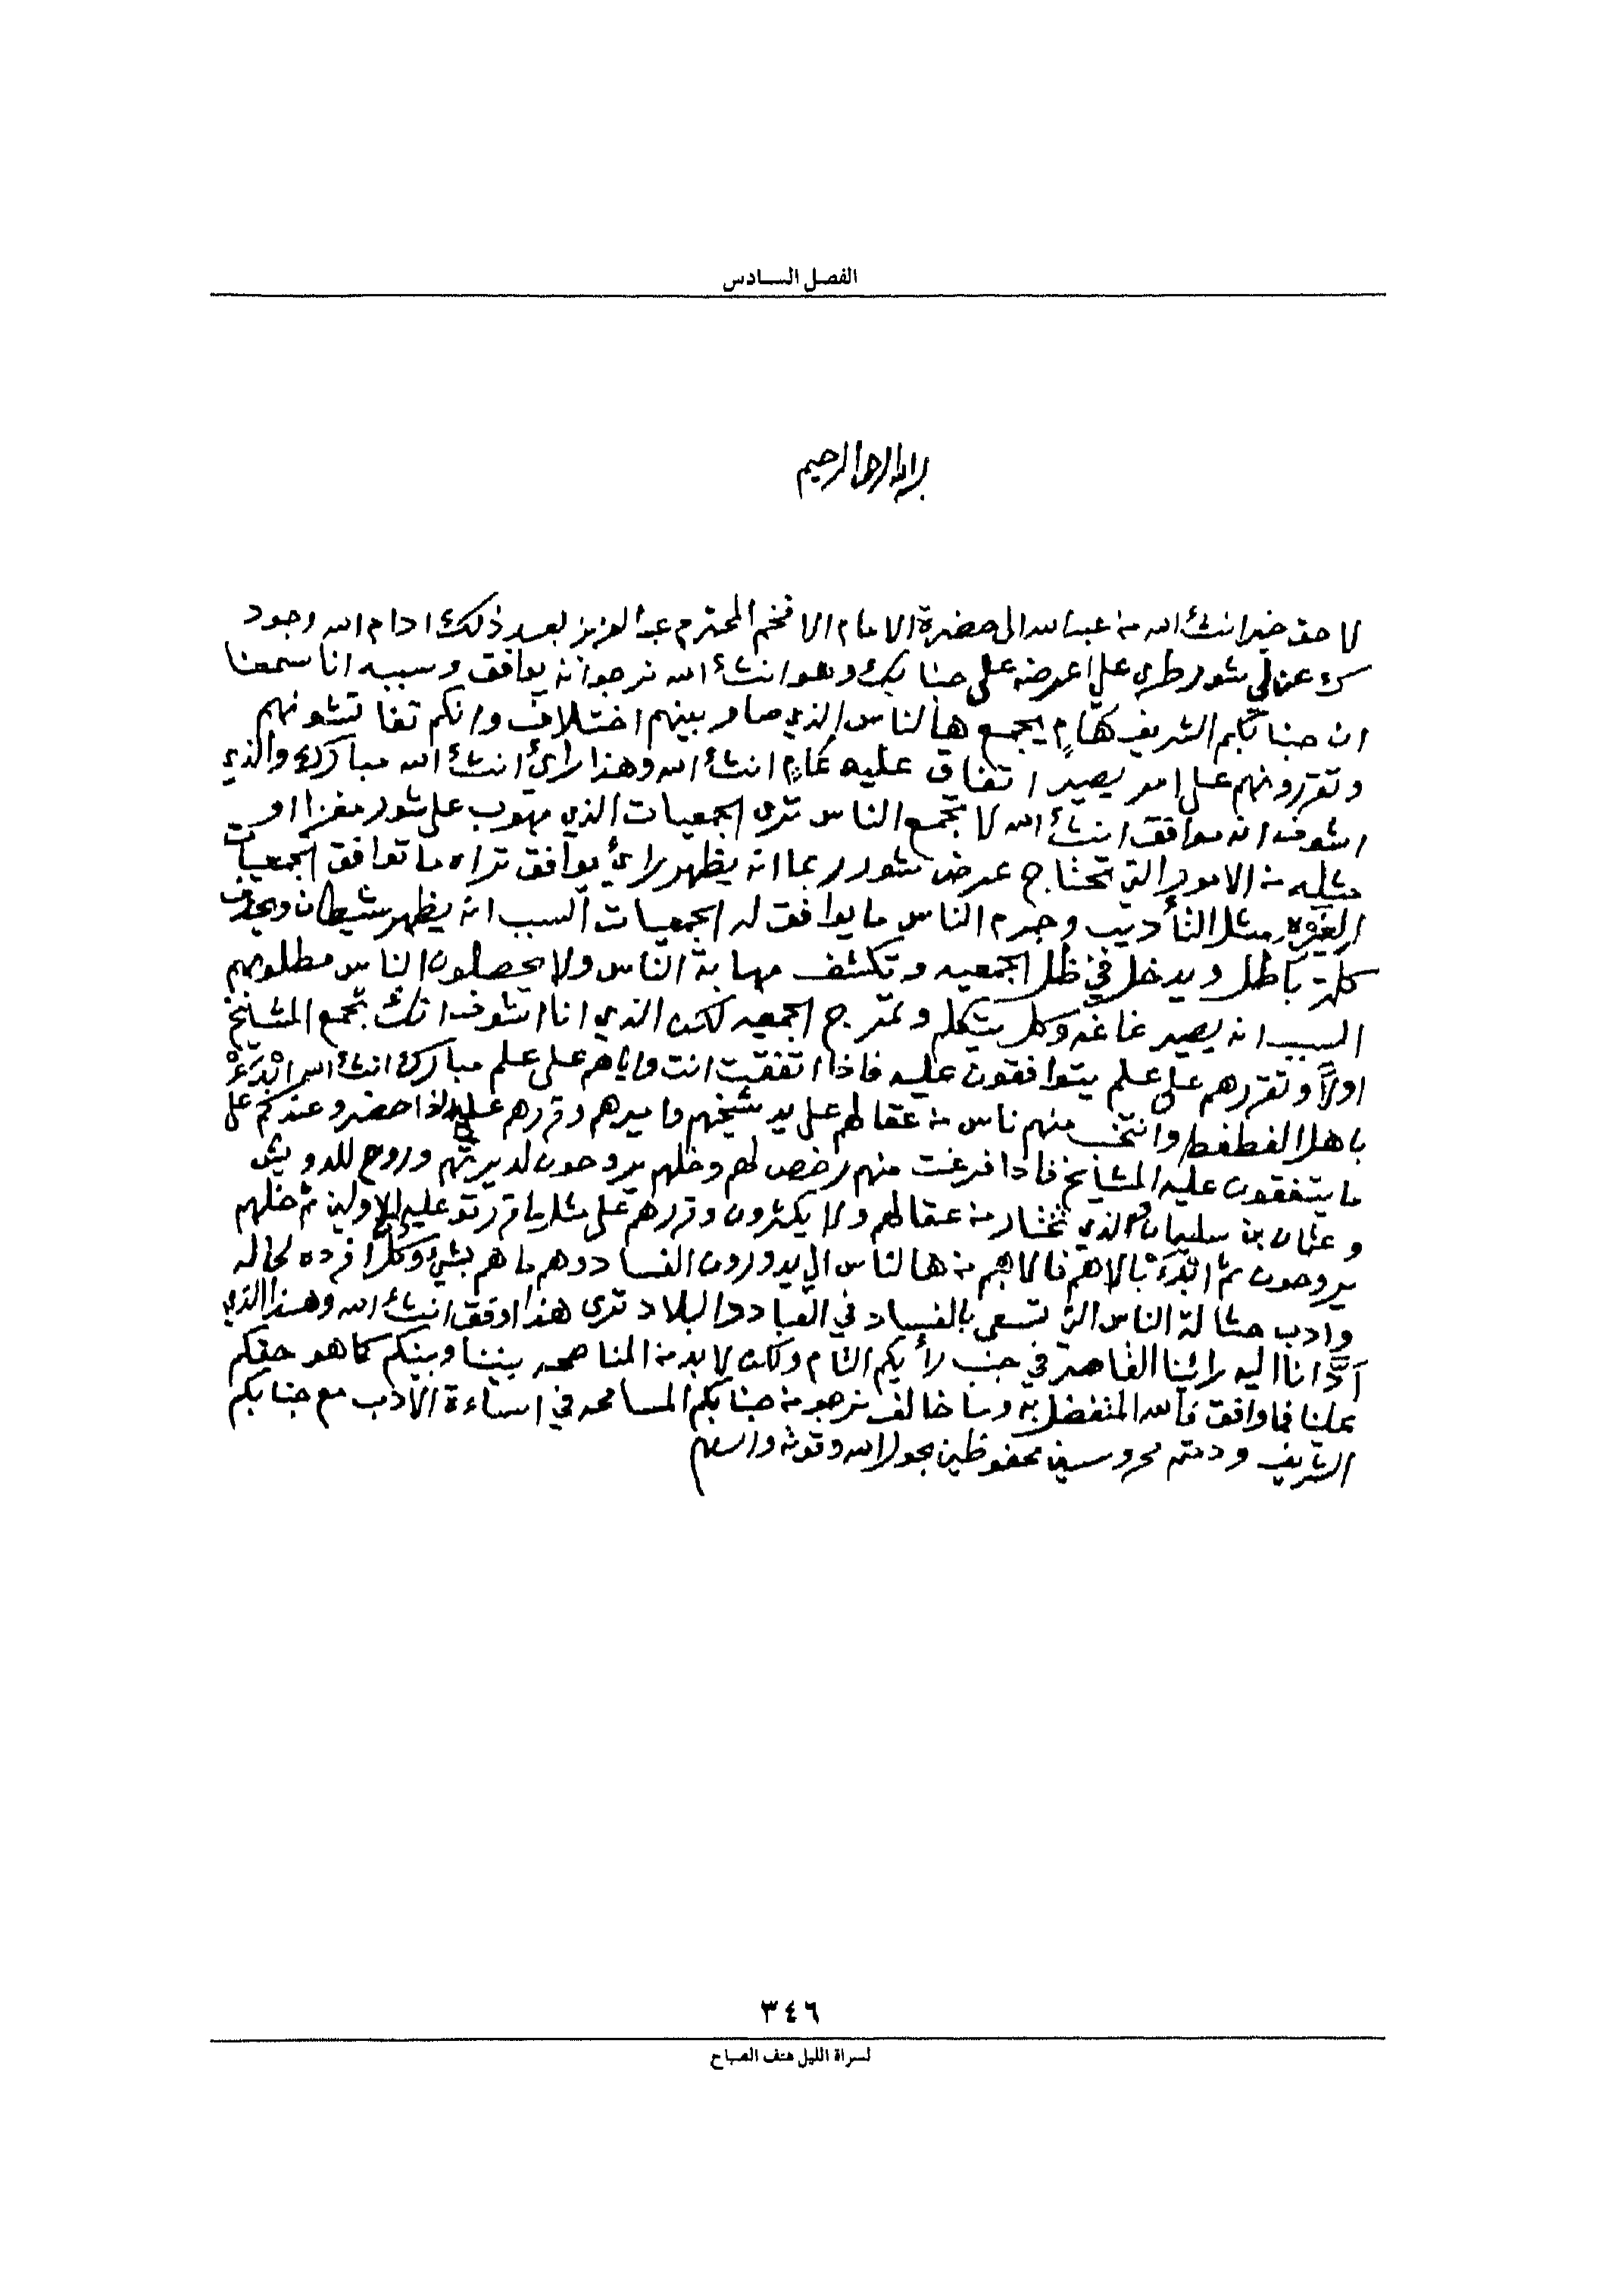 الفصل السادس
بسم الله الرحمن الرحيم
لاحق خير انشاء الله من عبدالله الى حضرة الامام الافخم المحترم عبد العزيز بعد ذلك ادام الله وجود
ك عن لي شور طرى علي اعرضه على جنابك وهو انشاء الله نرجوا انه يوافق وسببه انا سمعنا
ان جنابكم الشريف هام يجمع هالناس الذي صار بينهم اختلاف وانكم تشوفونهم
وتقررونهم على امر يصير اتفاق عليه عام انشاء الله وهذا راي انشاء الله مبارك والذي
اشوف انه موافق انشاء الله لا تجمع الناس ترى الجمعيات الذي مهوب على شور مغزا او
مثله من الامور التي تحتاج عرض شور ربما انه يظهر راي يوافق تراه ما توافق الجمعيات
مثل التأديب وجرم الناس ما يوافق له الجمعيات السبب انه يظهر شيطان
كلمة باطل ويدخل في ظل الجمعيه وتكشف مهابة الناس ولا يحصلون الناس مطلوبهم
السبب انه يصير غاغه وكل يتكلم وتمرج الجمعيه لكن الذي انا اشوف انك تجمع المشايخ
اولاً وتقررهم على علم يتوافقون عليه فاذا اتفقت انت واياهم على علم مبارك انشاء الله ابْدَءْ
باهل الغطغط وانتخب منهم ناس من عقالهم على يد شيخهم واميرهم وقررهم عليه اذا حضروا عندكم على
ما يتفقون عليه المشايخ فاذا فرغت منهم رخص لهم وخلهم يروحون لديرتهم وروح للدويش
وعثمان بن سليمان والذي تختار من عقالهم ولا يكثرون وقررهم على مثل ما قررتو عليه الاولين ثم خلهم
يروحون ثم ابْدَءْ بالاهم فالاهم من هالناس الي يدورون الفساد وهم ما هم بشي وكلاً افرده لحاله
وادب حثالة الناس التي تسعى بالفساد في العباد والبلاد ترى هذا اوفق انشاء الله وهذا الذي
أدَّانا اليه رائينا القاصر في جنب رأيكم التام ولكن لابد من المناصحه بيننا وبينكم كما هو حقكم
علينا فما وافق فالله المتفضل به وما خالف نرجو من جنابكم المسامحه في اساءة الادب مع جنابكم
الشريف ودمتم محروسين محفوظين بحول الله وقوته والسلام
٣٤٦
لسراة الليل هتف الصباح